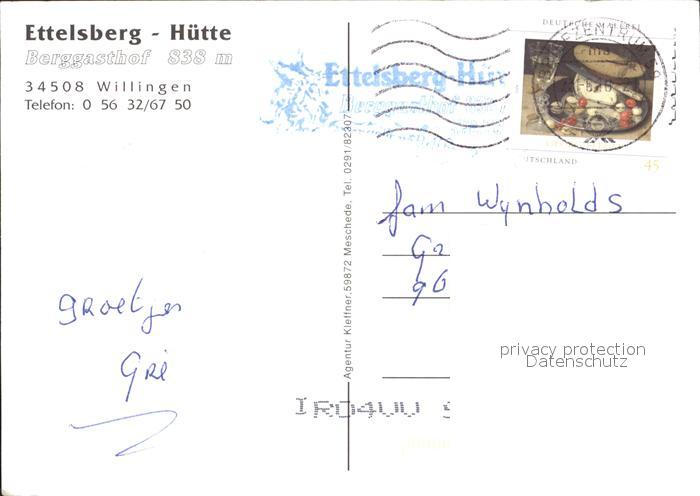 Ettelsberg - Hütte
Berggasthof 838 m
34508 Willingen
Telefon: 0 56 32/67 50
Ettelsberg-Hüt
Berggasthof
DEUTSCHE MALEREI
DEUTSCHLAND 45
Agentur Kleffner, 59872 Meschede, Tel. 0291/82307
fam Wynholds
Ga
96
groetjes
Gré
privacy protection
Datenschutz